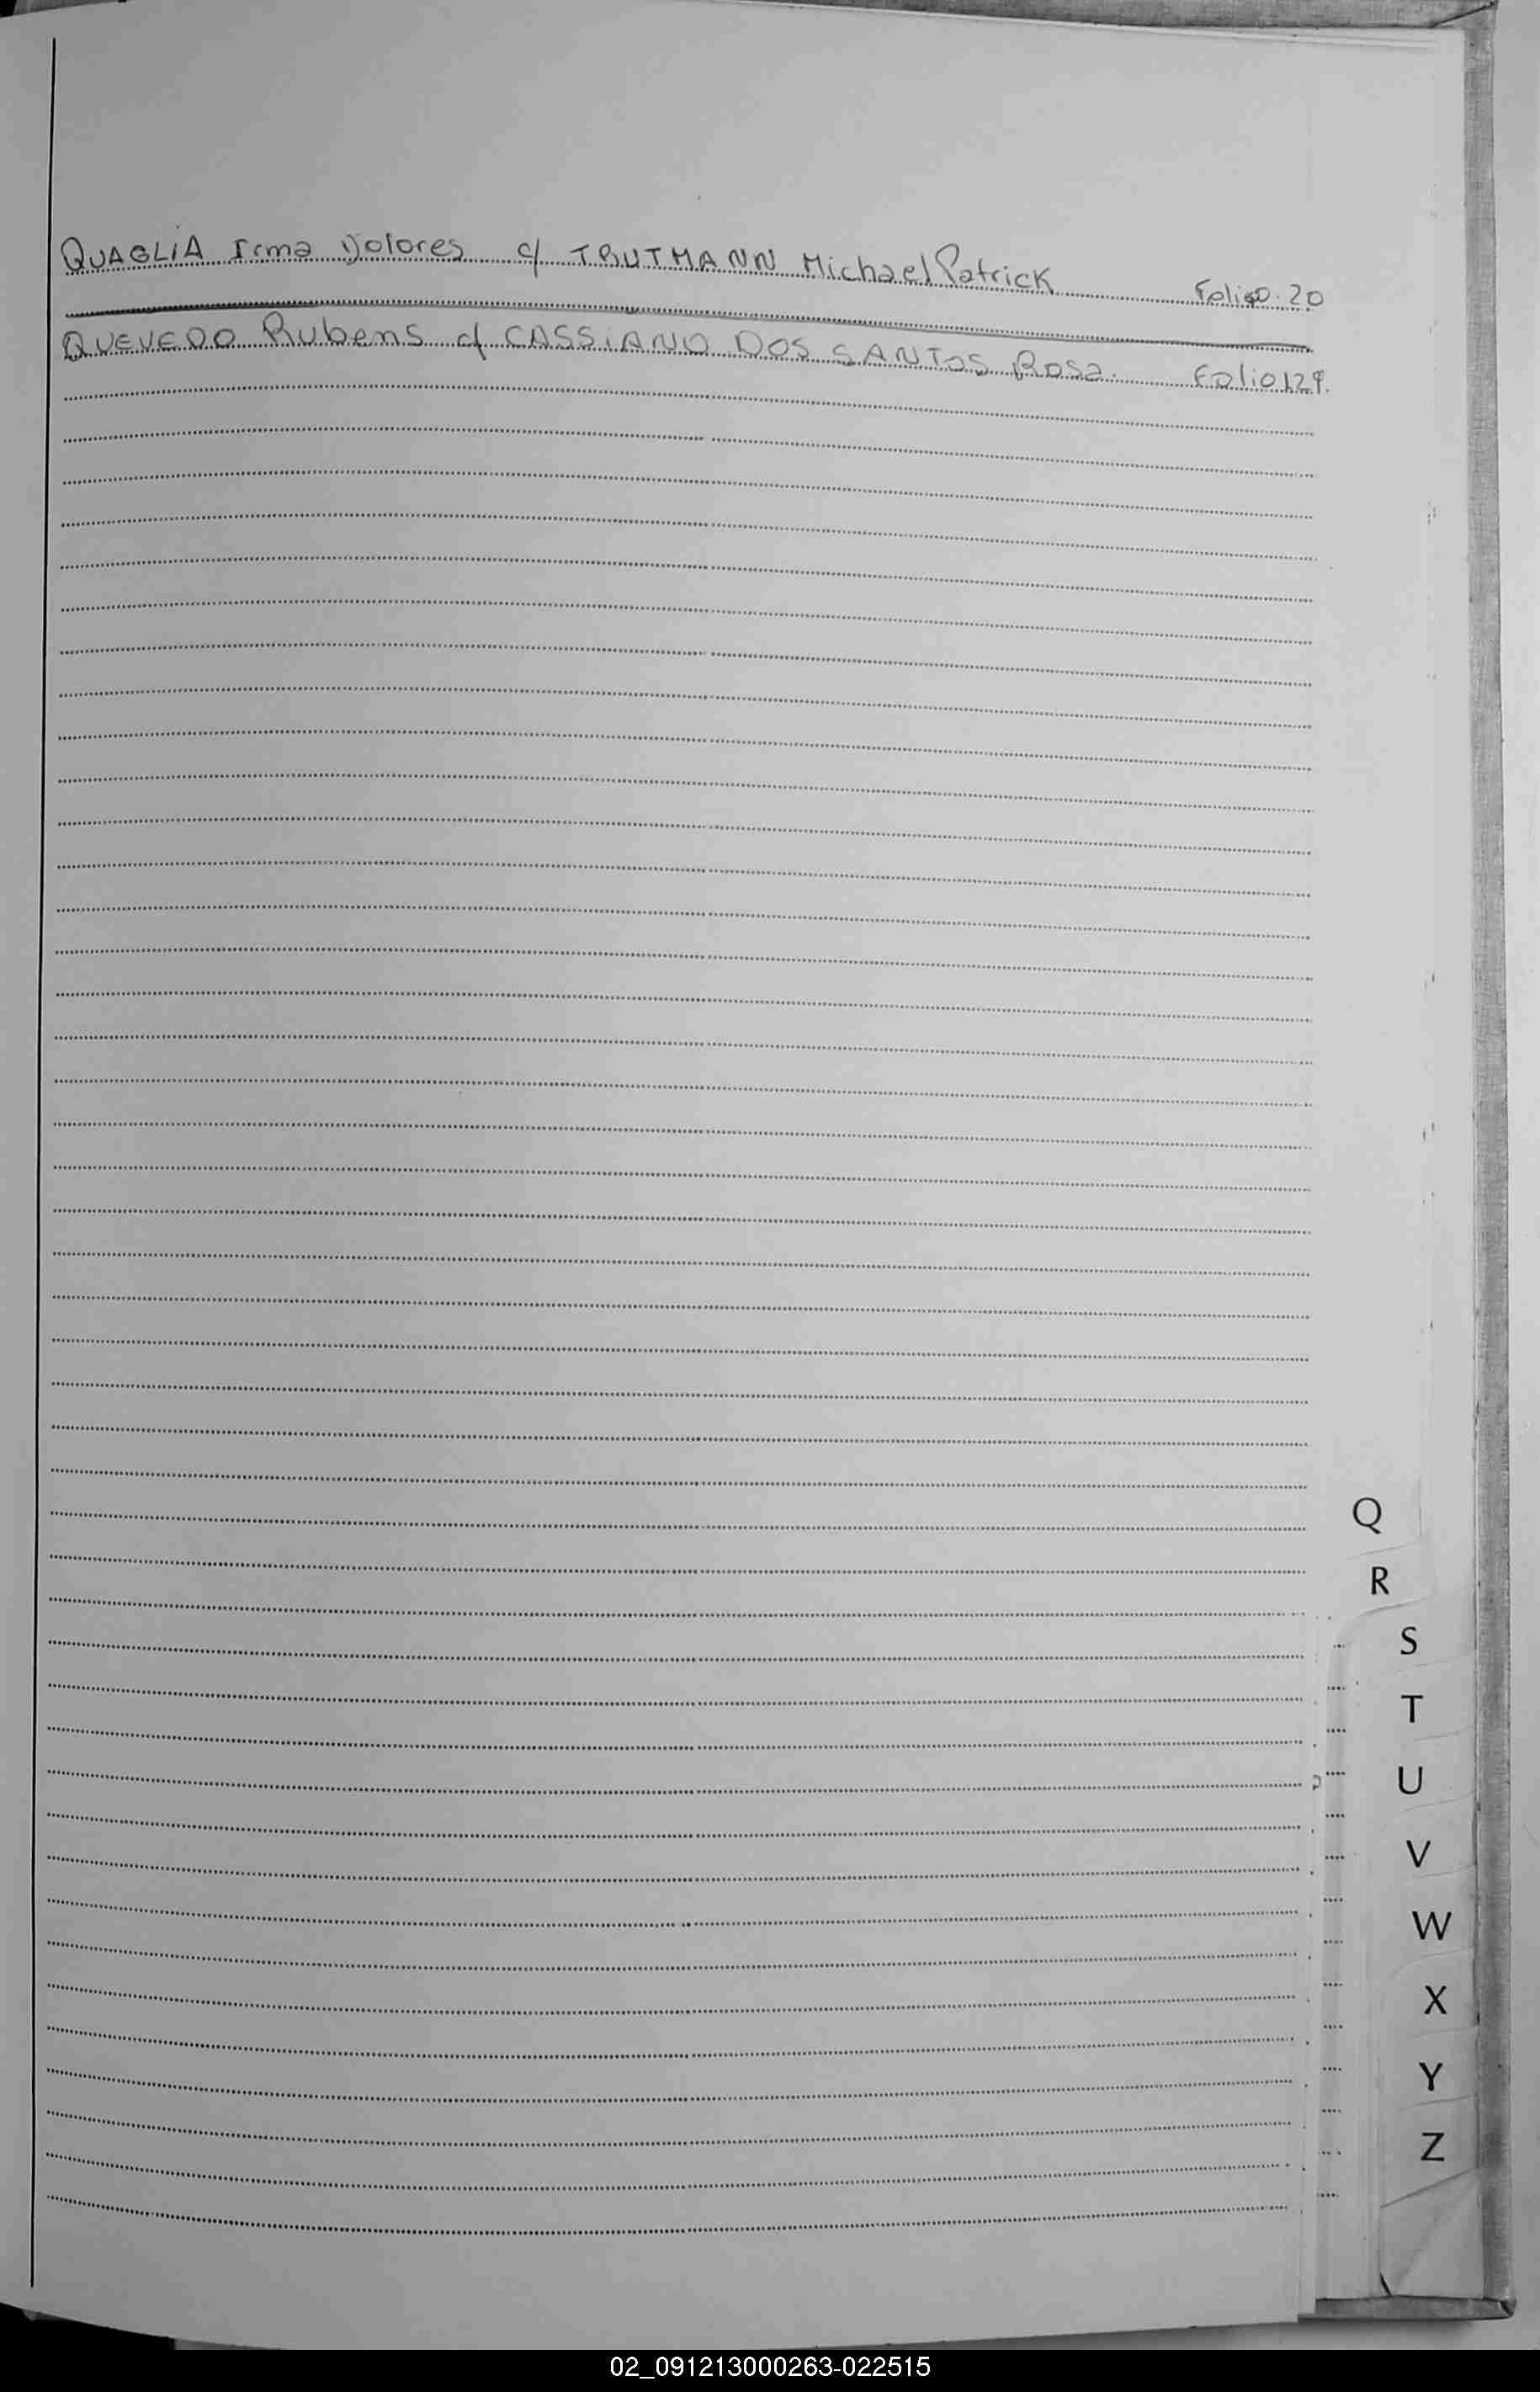 QUAGLIA Irma Dolores c/ TRUTMANN Michael Patrick Folio 20
QUEVEDO Rubens c/ CASSIANO DOS SANTOS Rosa. Folio 129.
Q
R
S
T
U
V
W
X
Y
Z
02_091213000263-022515